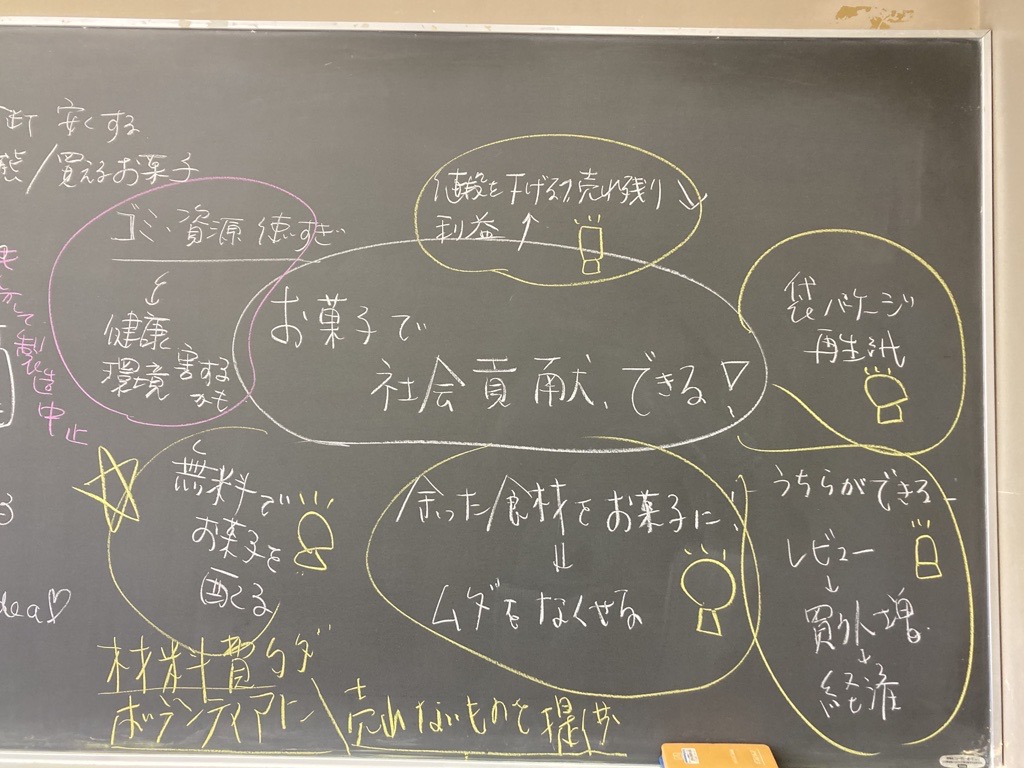 安くする
/買えるお菓子
ゴミ・資源 使いすぎ
↓
健康
環境 害する
かも
製造中止
値段を下げる?売れ残り↘
利益↑
お菓子で
社会貢献、できる!
袋 パケージ
再生紙
無料で
お菓子を
配る
余った食材をお菓子に!
↓
ムダをなくせる
うちらができる
レビュー
↓
買う人増
↓
経済
dea♡
材料費タダ
ボランティアに\売れないものを提供